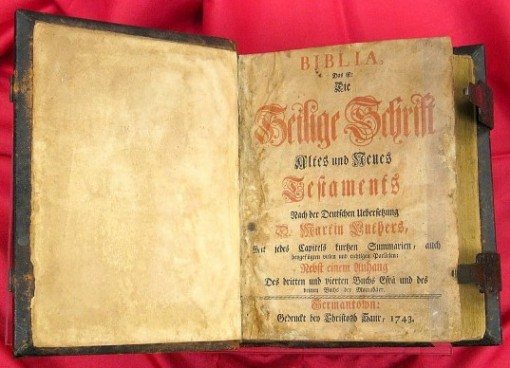 BIBLIA,
Das ist:
Die
Heilige Schrift
Altes und Neues
Testaments
Nach der Deutschen Uebersetzung
D. Martin Luthers,
Mit jedes Capitels kurtzen Summarien, auch
beygefügten vielen und richtigen Parallelen:
Nebst einem Anhang
Des dritten und vierten Buchs Esrä und des
dritten Buchs der Maccabäer.
Germantown:
Gedruckt bey Christoph Saur, 1743.